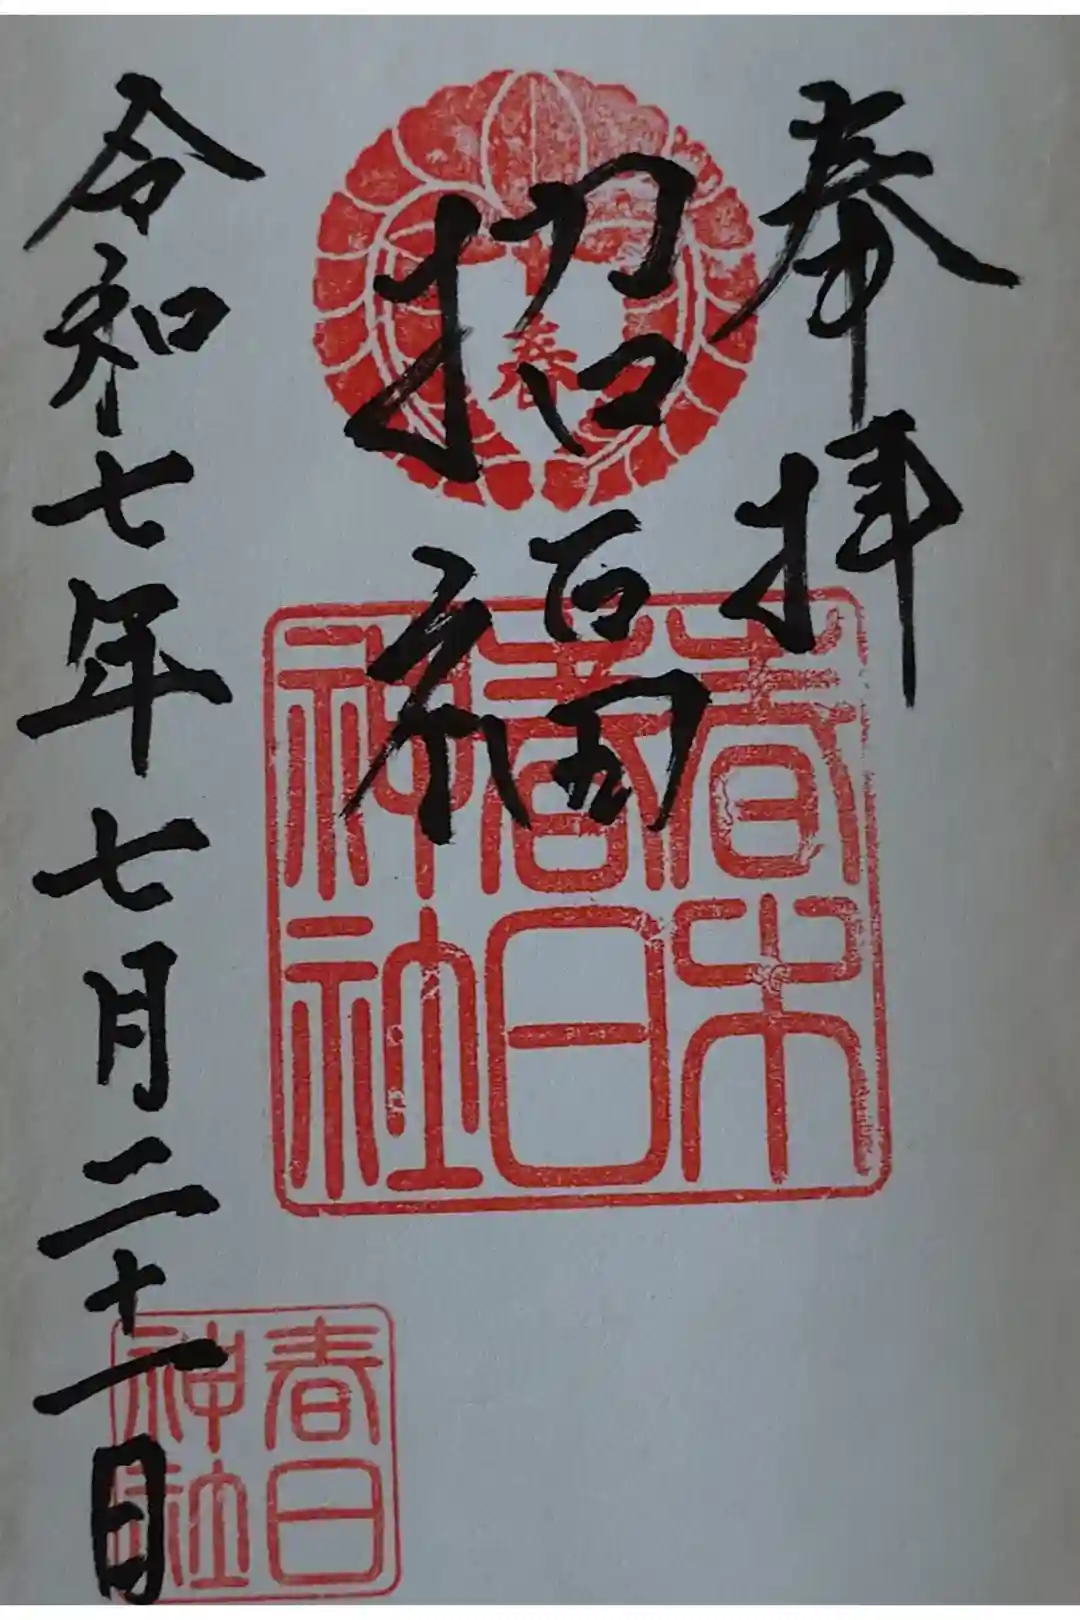 奉拝
招福
令和七年七月二十一日
春
春木
春日
神社
春日
神社